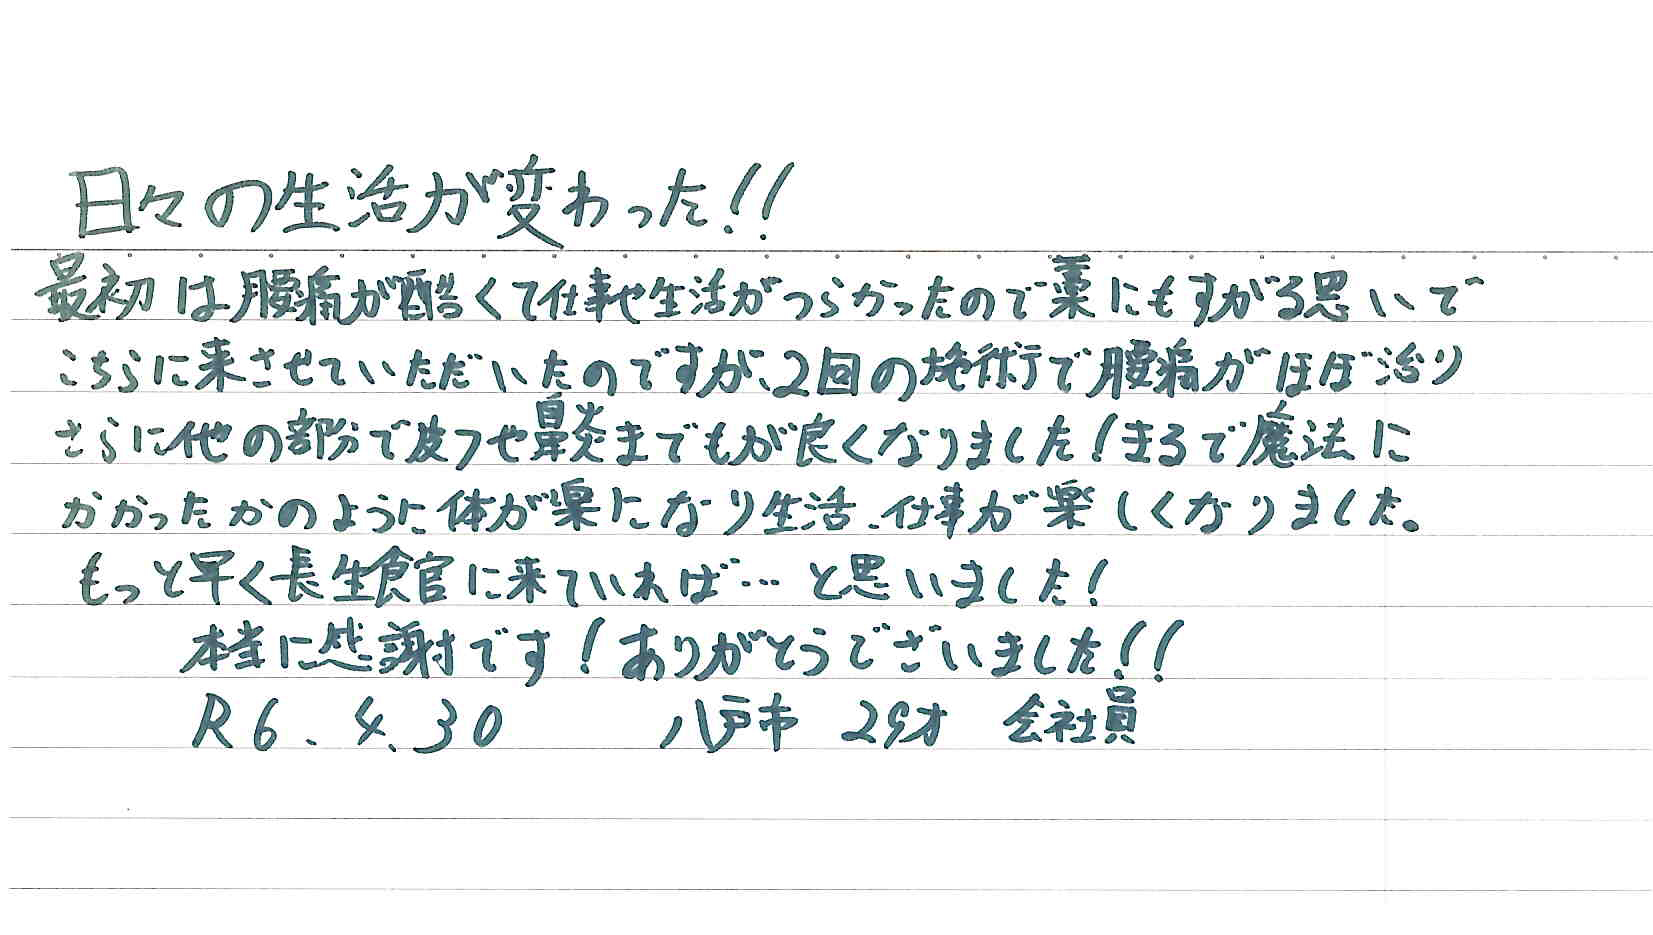 日々の生活が変わった!!
最初は腰痛が酷くて仕事や生活がつらかったので藁にもすがる思いで
こちらに来させていただいたのですが、2回の施術で腰痛がほぼ治り
さらに他の部分で皮フや鼻炎までもが良くなりました!まるで魔法に
かかったかのように体が楽になり生活、仕事が楽しくなりました。
もっと早く長生館に来ていれば…と思いました!
本当に感謝です!ありがとうございました!!
R6、4、30 八戸市 29才 会社員